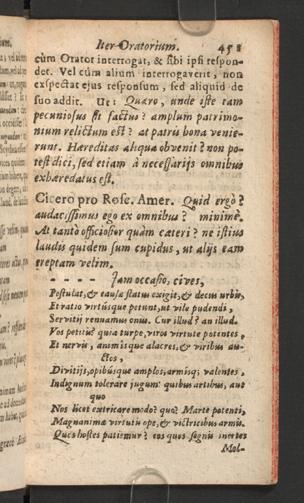 Iter Oratorium. 451
cùm Orator interrogat, & sibi ipsi respon-
det. Vel cùm alium interrogaverit, non
exspectat ejus responsum, sed aliquid de
suo addit. Ut: Quæro, unde iste tam
pecuniosus sit factus? amplum patrimo-
nium relictum est? at patris bona venie-
runt. Hæreditas aliqua obvenit? non po-
test dici, sed etiam à necessarijs omnibus
exhæredatus est.
Cicero pro Rosc. Amer. Quid ergò?
audacissimus ego ex omnibus? minimè.
At tantò officiosior quàm cæteri? ne istius
laudis quidem sum cupidus, ut alijs eam
ereptam velim.
- - - - Jam occasio, cives,
Postulat, & causæ status exigit, & decus urbis,
Et ratio virtúsque petunt, ut vile pudendi,
Servitij renuamus onus. Cur illud? an illud.
Vos petitis? quia turpe, viros virtute potentes,
Et nervis, animísque alacres, & viribus au-
ctos,
Divitijs, opibúsque amplos, armisq; valentes,
Indignum tolerare jugum? quibus artibus, aut
quo
Nos licet extricare modo? quo? Marte potenti,
Magnanimæ virtutis ope, & victricibus armis.
Quos hostes patimur? eos quos segnis inertes
Mol-